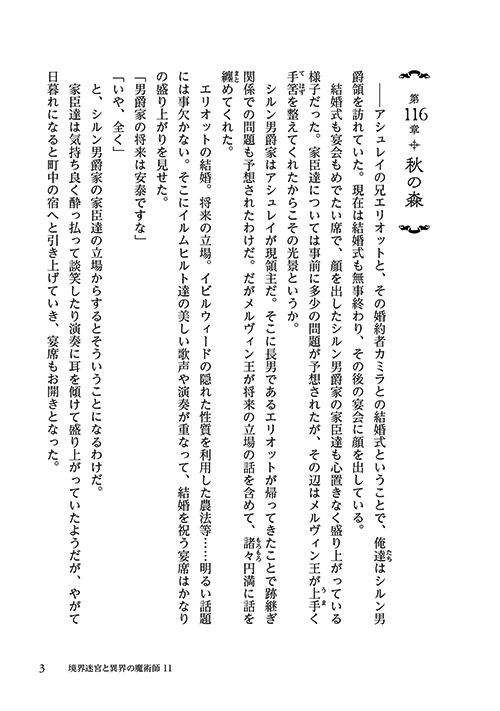 第116章 秋の森
――アシュレイの兄エリオットと、その婚約者カミラとの結婚式ということで、俺達はシルン男
爵領を訪れていた。現在は結婚式も無事終わり、その後の宴会に顔を出している。
結婚式も宴会もめでたい席で、顔を出したシルン男爵家の家臣達も心置きなく盛り上がっている
様子だった。家臣達については事前に多少の問題が予想されたが、その辺はメルヴィン王が上手く
手筈を整えてくれたからこその光景というか。
シルン男爵家はアシュレイが現領主だ。そこに長男であるエリオットが帰ってきたことで跡継ぎ
関係での問題も予想されたわけだ。だがメルヴィン王が将来の立場の話を含めて、諸々円満に話を
纏めてくれた。
エリオットの結婚。将来の立場。イビルウィードの隠れた性質を利用した農法等……明るい話題
には事欠かない。そこにイルムヒルト達の美しい歌声や演奏が重なって、結婚を祝う宴席はかなり
の盛り上がりを見せた。
「男爵家の将来は安泰ですな」
「いや、全く」
と、シルン男爵家の家臣達の立場からするとそういうことになるわけだ。
家臣達は気持ち良く酔っ払って談笑したり演奏に耳を傾けて盛り上がっていたようだが、やがて
日暮れになると町中の宿へと引き上げていき、宴席もお開きとなった。
3 境界迷宮と異界の魔術師 11